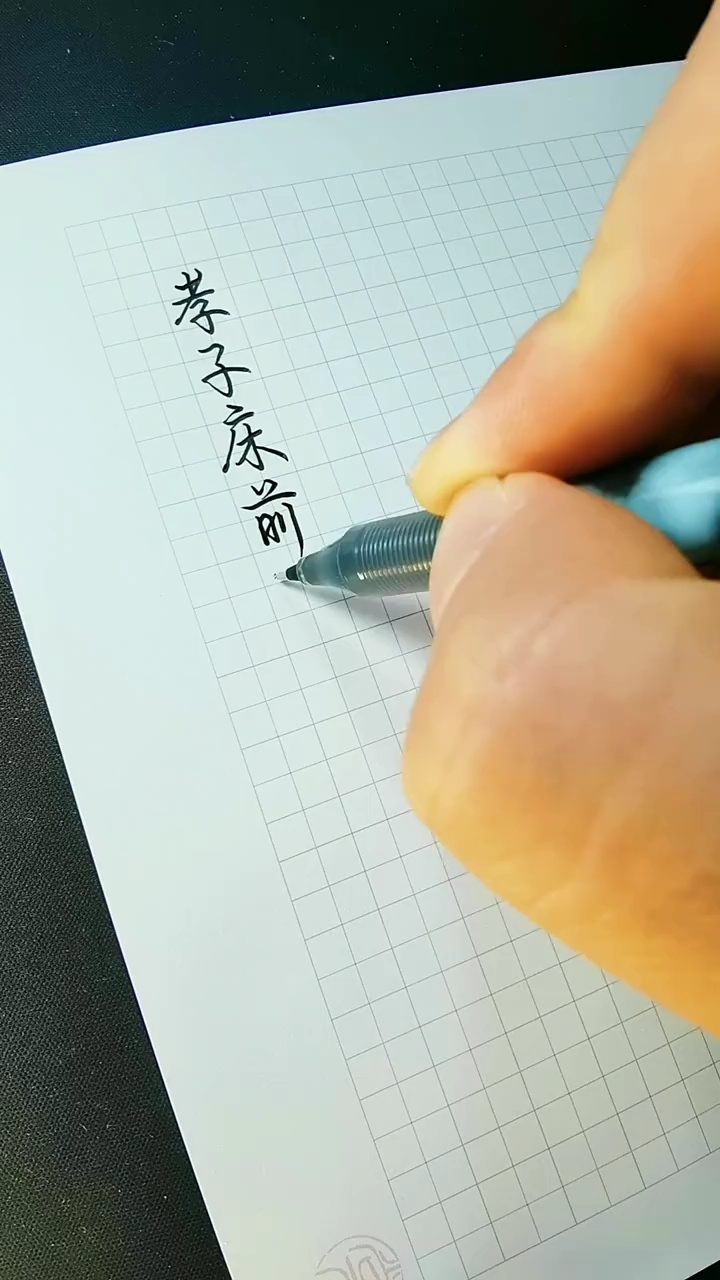 孝子床前